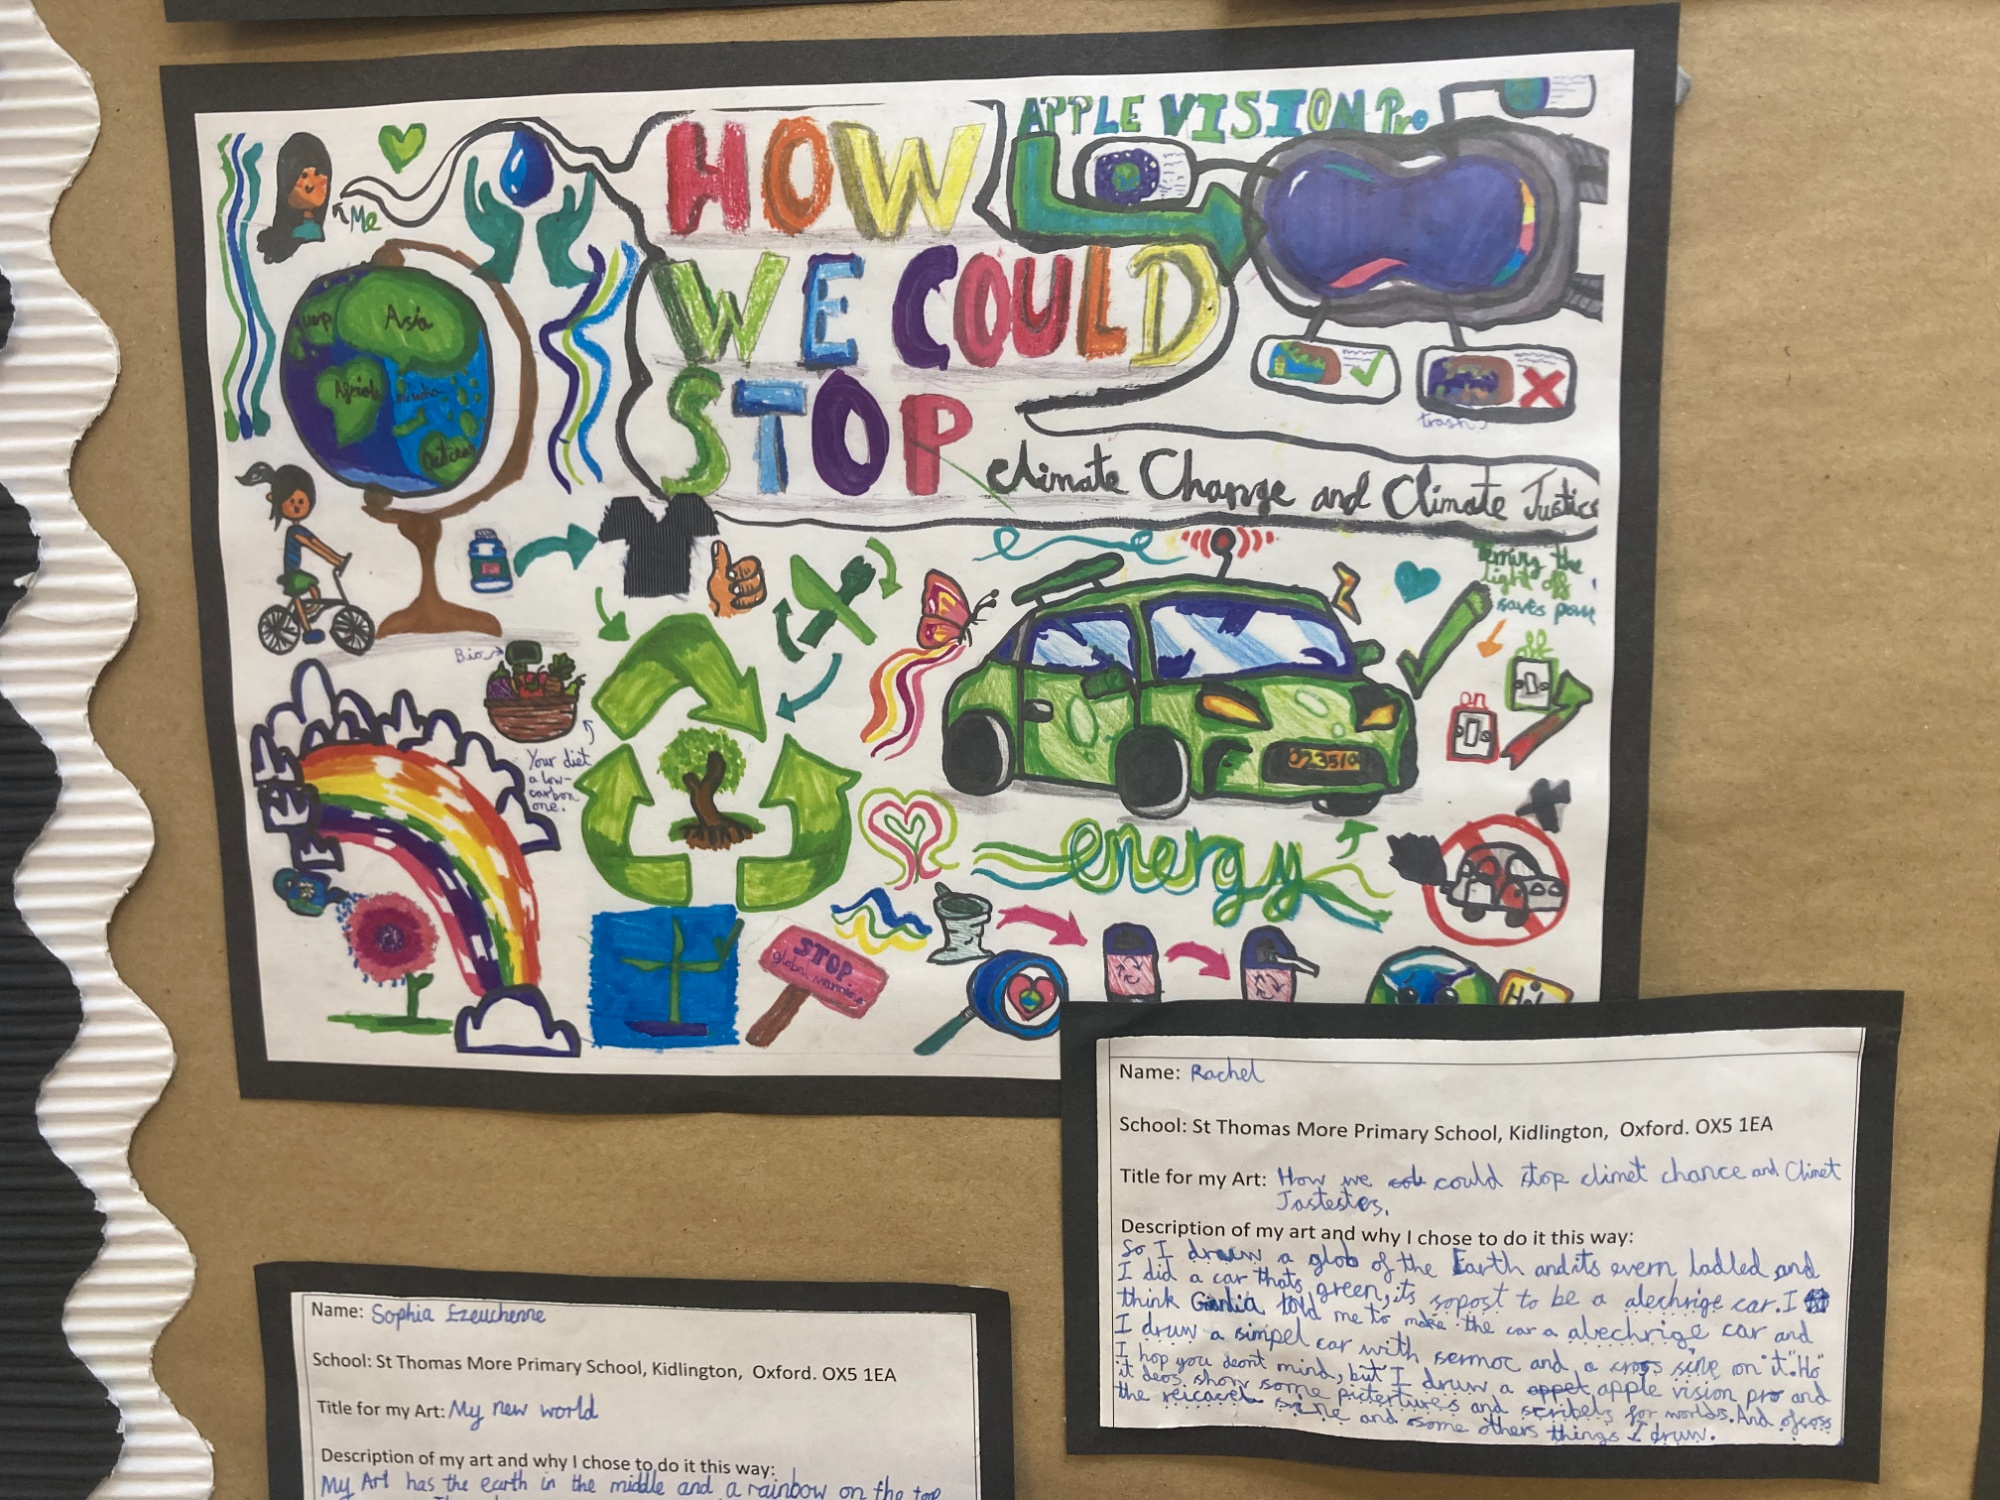 APPLE VISION Pro
HOW
WE COULD
STOP
Climate Change and Climate Justice
Me
Asia
Africa
trash
turning the
light off
saves powe
off
on
Bio
Your diet
a low-
carbon
one.
023510
energy
STOP
global warming
Name: Rachel
School: St Thomas More Primary School, Kidlington, Oxford. OX5 1EA
Title for my Art: How we could stop climet chance and Climet
Jastestes.
Description of my art and why I chose to do it this way:
So I drauw a glob of the Earth and its evern ladled and
I did a car thats green, its sopost to be a alechrige car. I
think Giulia told me to make the car a alechrige car and
I druw a simpel car with sermoc and a cross sine on it. "Ho"
I hop you deont mind, but I druw a apple vision pro and
it deos show some pictertures and scribels for worlds. And ofcoss
the reicavel sine and some others things I druw.
Name: Sophia Ezeuchenne
School: St Thomas More Primary School, Kidlington, Oxford. OX5 1EA
Title for my Art: My new world
Description of my art and why I chose to do it this way:
My Art has the earth in the middle and a rainbow on the top